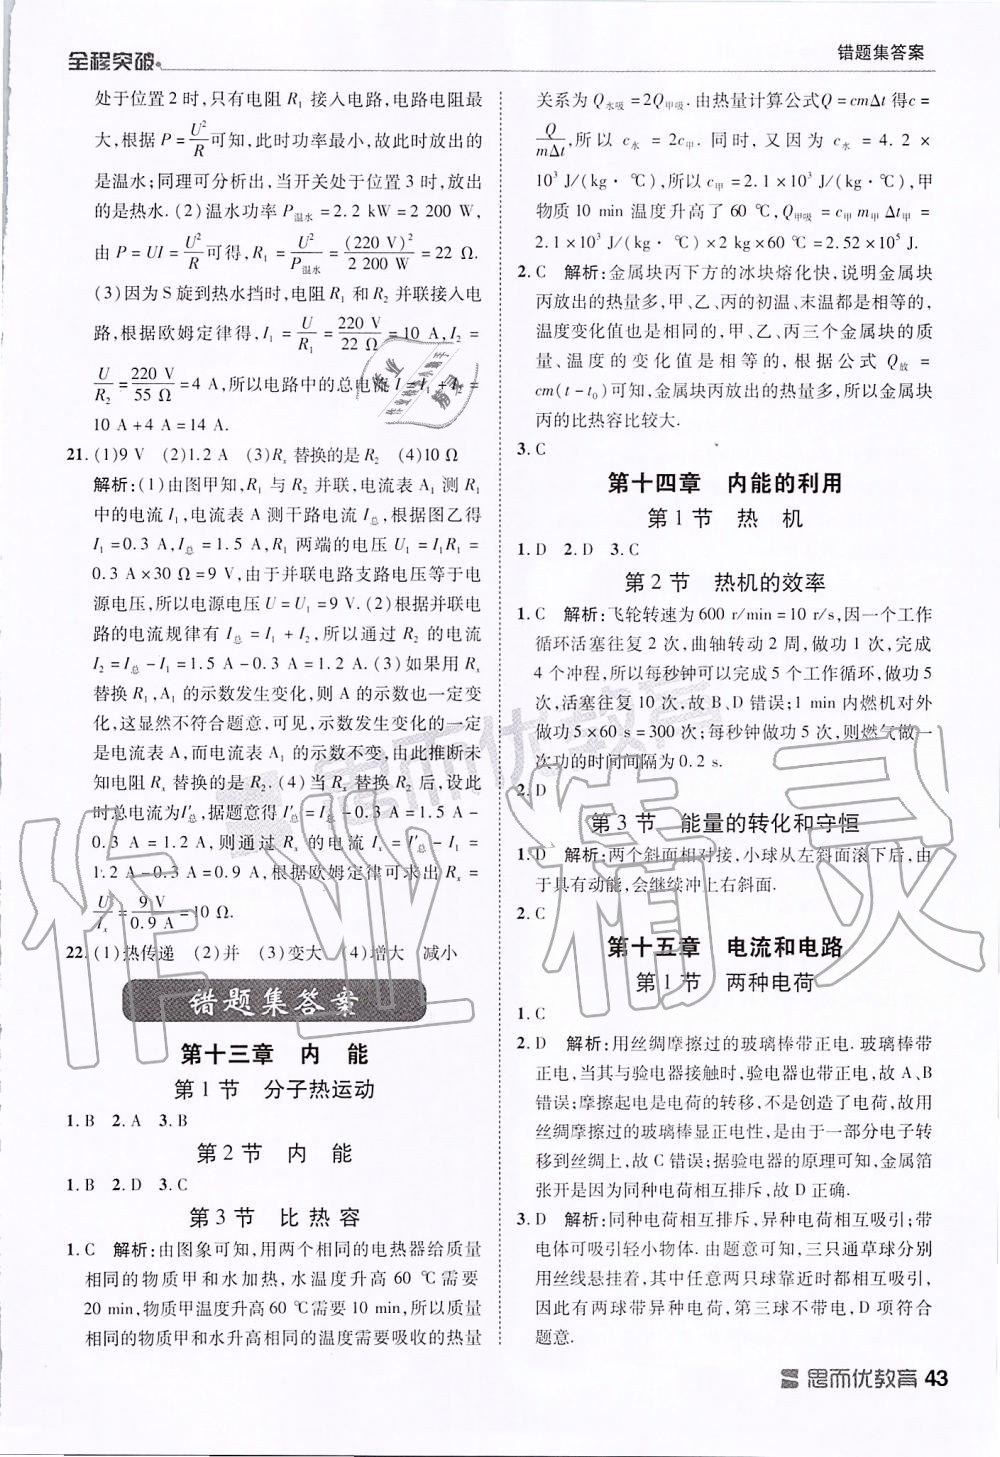 全程突破
错题集答案
处于位置2时,只有电阻R₁接入电路,电路电阻最
大,根据P=U²/R可知,此时功率最小,故此时放出的
是温水;同理可分析出,当开关处于位置3时,放出
的是热水.(2)温水功率P温水=2.2 kW=2 200 W,
由P=UI=U²/R可得,R₁=U²/P温水=(220 V)²/2 200 W=22 Ω.
(3)因为S旋到热水挡时,电阻R₁和R₂并联接入电
路,根据欧姆定律得,I₁=U/R₁=220 V/22 Ω=10 A,I₂=
U/R₂=220 V/55 Ω=4 A,所以电路中的总电流I=I₁+I₂=
10 A+4 A=14 A.
21.(1)9 V (2)1.2 A (3)Rₓ替换的是R₂ (4)10 Ω
解析:(1)由图甲知,R₁与R₂并联,电流表A₁测R₁
中的电流I₁,电流表A测干路电流I总,根据图乙得
I₁=0.3 A,I总=1.5 A,R₁两端的电压U₁=I₁R₁=
0.3 A×30 Ω=9 V,由于并联电路支路电压等于电
源电压,所以电源电压U=U₁=9 V.(2)根据并联电
路的电流规律有I总=I₁+I₂,所以通过R₂的电流
I₂=I总-I₁=1.5 A-0.3 A=1.2 A.(3)如果用Rₓ
替换R₁,A₁的示数发生变化,则A的示数也一定变
化,这显然不符合题意,可见,示数发生变化的一定
是电流表A,而电流表A₁的示数不变,由此推断未
知电阻Rₓ替换的是R₂.(4)当Rₓ替换R₂后,设此
时总电流为I′总,据题意得I′总=I总-0.3 A=1.5 A-
0.3 A=1.2 A,则通过Rₓ的电流Iₓ=I′总-I₁=
1.2 A-0.3 A=0.9 A,根据欧姆定律可求出Rₓ=
U/Iₓ=9 V/0.9 A=10 Ω.
22.(1)热传递 (2)并 (3)变大 (4)增大 减小
错题集答案
第十三章 内 能
第1节 分子热运动
1. B 2. A 3. B
第2节 内 能
1. B 2. D 3. C
第3节 比 热 容
1. C 解析:由图象可知,用两个相同的电热器给质量
相同的物质甲和水加热,水温度升高60 ℃需要
20 min,物质甲温度升高60 ℃需要10 min,所以质量
相同的物质甲和水升高相同的温度需要吸收的热量
关系为Q水吸=2Q甲吸.由热量计算公式Q=cmΔt得c=
Q/mΔt,所以c水=2c甲.同时,又因为c水=4.2×
10³ J/(kg·℃),所以c甲=2.1×10³ J/(kg·℃),甲
物质10 min温度升高了60 ℃,Q甲吸=c甲m甲Δt甲=
2.1×10³ J/(kg·℃)×2 kg×60 ℃=2.52×10⁵ J.
2. C 解析:金属块丙下方的冰块熔化快,说明金属块
丙放出的热量多,甲、乙、丙的初温、末温都是相等的,
温度变化值也是相同的,甲、乙、丙三个金属块的质
量、温度的变化值是相等的,根据公式Q放=
cm(t-t₀)可知,金属块丙放出的热量多,所以金属块
丙的比热容比较大.
3. C
第十四章 内能的利用
第1节 热 机
1. D 2. D 3. C
第2节 热机的效率
1. C 解析:飞轮转速为600 r/min=10 r/s,因一个工作
循环活塞往复2次,曲轴转动2周,做功1次,完成
4个冲程,所以每秒钟可以完成5个工作循环,做功5
次,活塞往复10次,故B、D错误;1 min内燃机对外
做功5×60 s=300次;每秒钟做功5次,则燃气做一
次功的时间间隔为0.2 s.
2. D
第3节 能量的转化和守恒
1. D 解析:两个斜面相对接,小球从左斜面滚下后,由
于具有动能,会继续冲上右斜面.
2. C
第十五章 电流和电路
第1节 两种电荷
1. C
2. D 解析:用丝绸摩擦过的玻璃棒带正电.玻璃棒带
正电,当其与验电器接触时,验电器也带正电,故A、B
错误;摩擦起电是电荷的转移,不是创造了电荷,故用
丝绸摩擦过的玻璃棒显正电性,是由于一部分电子转
移到丝绸上,故C错误;据验电器的原理可知,金属箔
张开是因为同种电荷相互排斥,故D正确.
3. D 解析:同种电荷相互排斥,异种电荷相互吸引;带
电体可吸引轻小物体.由题意可知,三只通草球分别
用丝线悬挂着,其中任意两只球靠近时都相互吸引,
因此有两球带异种电荷,第三球不带电,D项符合
题意.
思而优教育 43
作业精灵
思而优教育